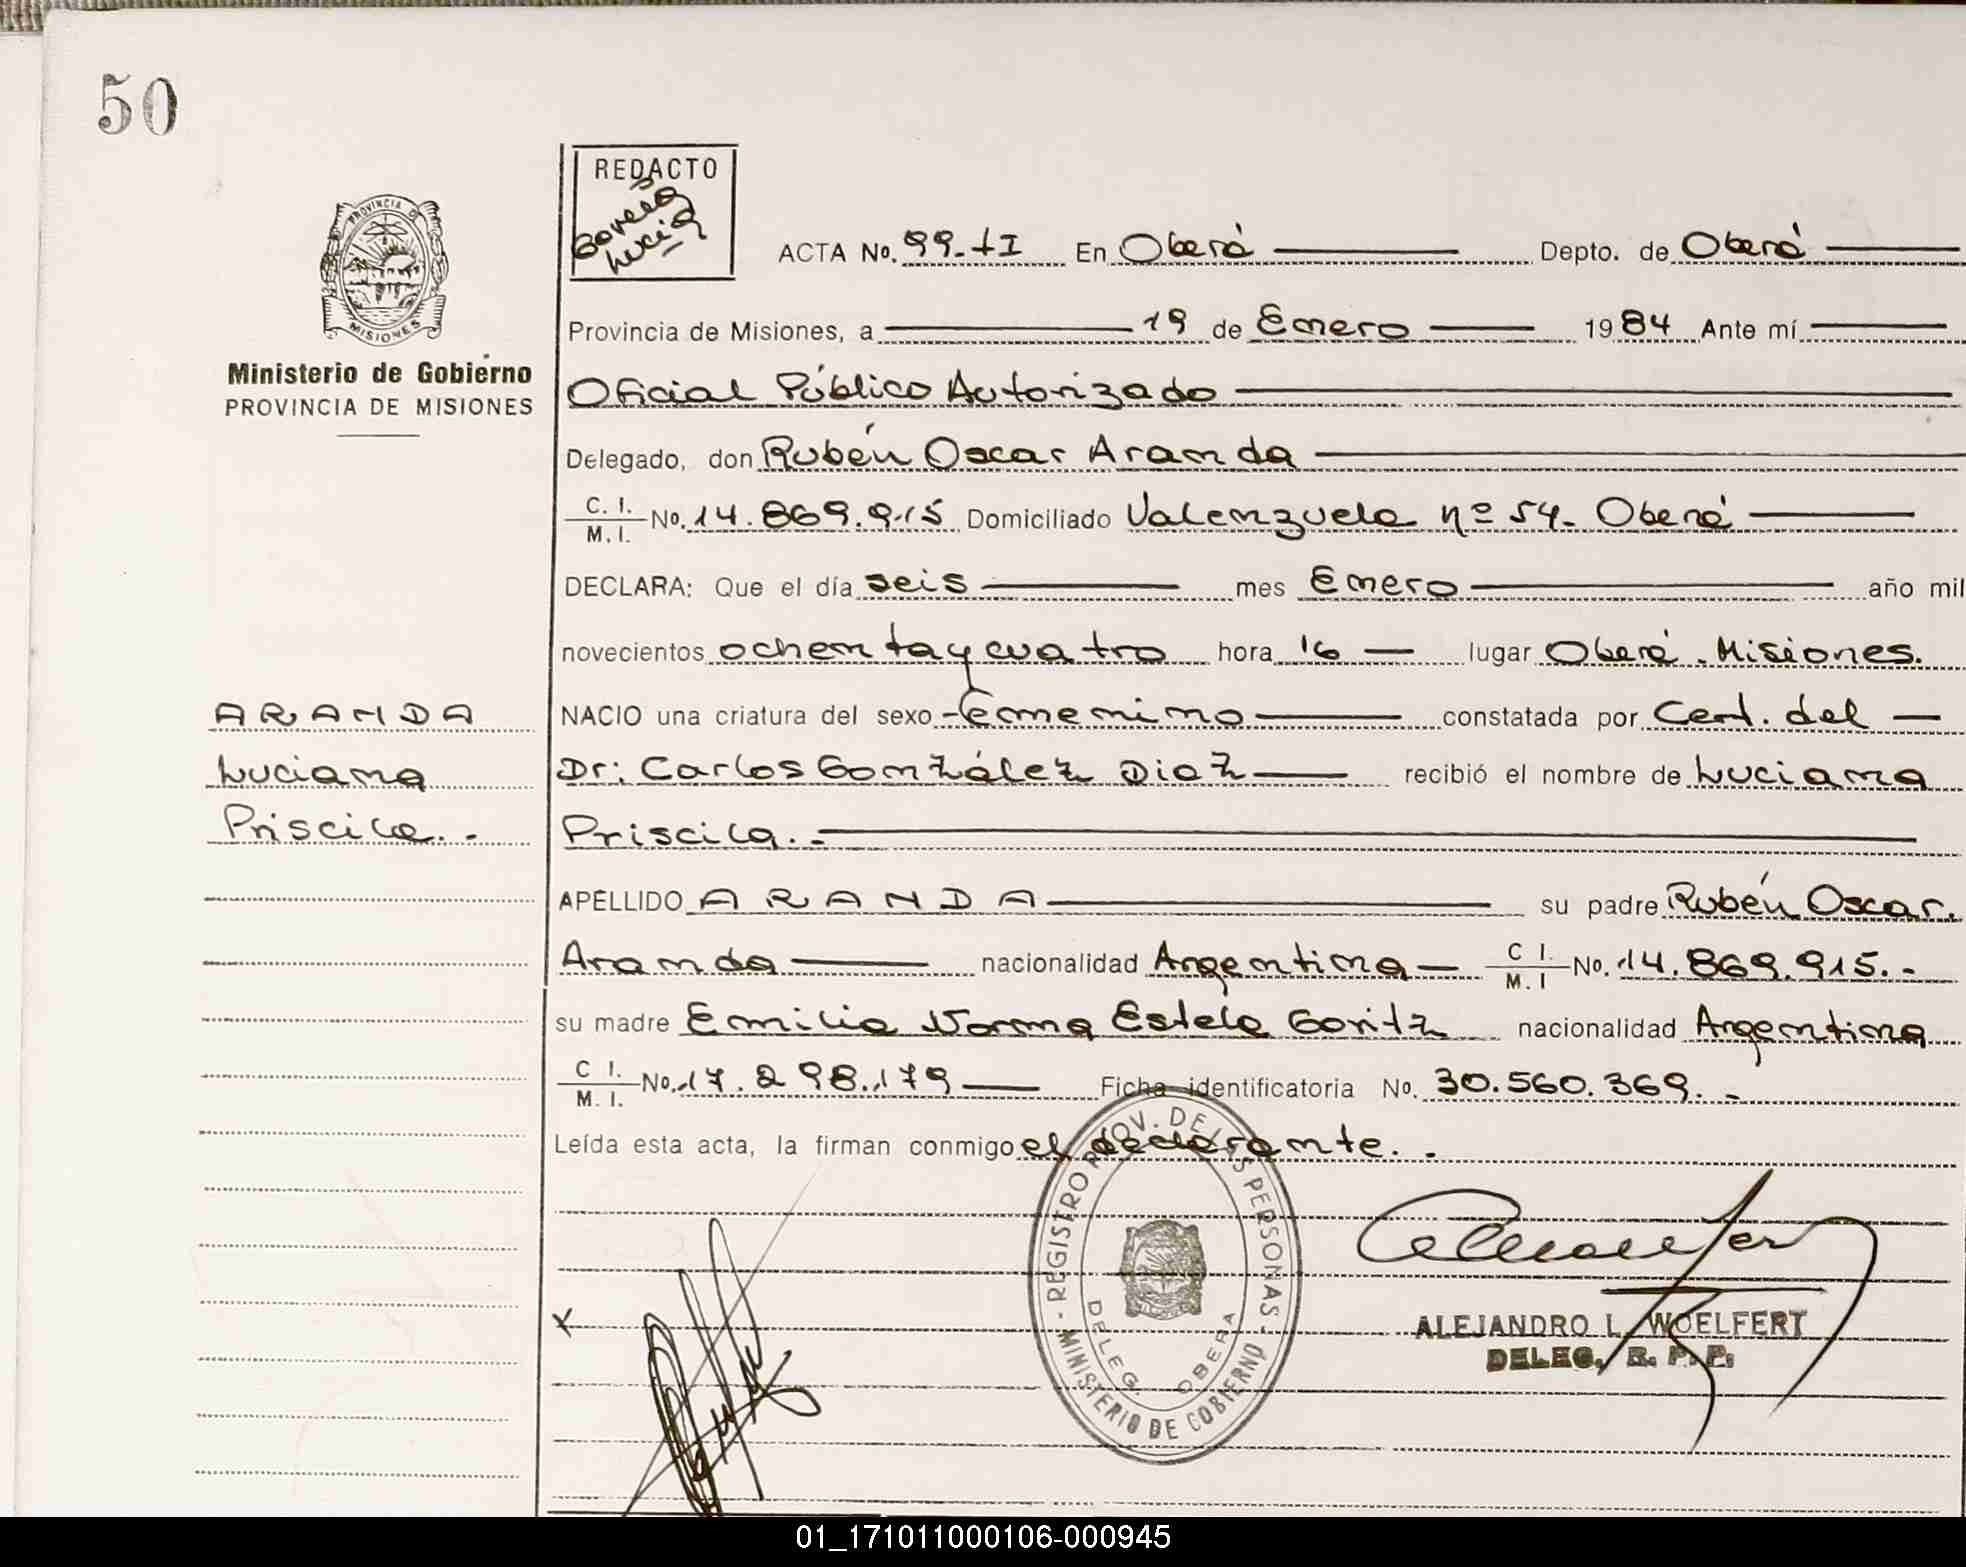 50
REDACTO
Lucía
PROVINCIA D
MISIONES
Ministerio de Gobierno
PROVINCIA DE MISIONES
ACTA No. 99-tI En Oberá Depto. de Oberá
Provincia de Misiones, a 19 de Enero 1984 Ante mí
Oficial Público Autorizado
Delegado, don Rubén Oscar Aranda
C. I. M. I. No. 14.869.915 Domiciliado Valenzuela nº 54. Oberá
DECLARA: Que el día seis mes Enero año mil
novecientos ochenta y cuatro hora 16 lugar Oberá. Misiones.
ARANDA
Luciana
Priscila.-
NACIO una criatura del sexo femenino constatada por Cert. del
Dr: Carlos González Diaz recibió el nombre de Luciana
Priscila.-
APELLIDO ARANDA su padre Rubén Oscar.
Aranda nacionalidad Argentina C I. M. I No. 14.869.915.-
su madre Emilia Norma Estela Goritz nacionalidad Argentina
C I. M. I. No. 17.298.179 Ficha identificatoria No. 30.560.369.-
Leída esta acta, la firman conmigo el declarante.-
REGISTRO PROV. DE LAS PERSONAS
MINISTERIO DE GOBIERNO
DELEG. OBERA
ALEJANDRO L. WOELFERT
DELEG. R. P. P.
01_171011000106-000945